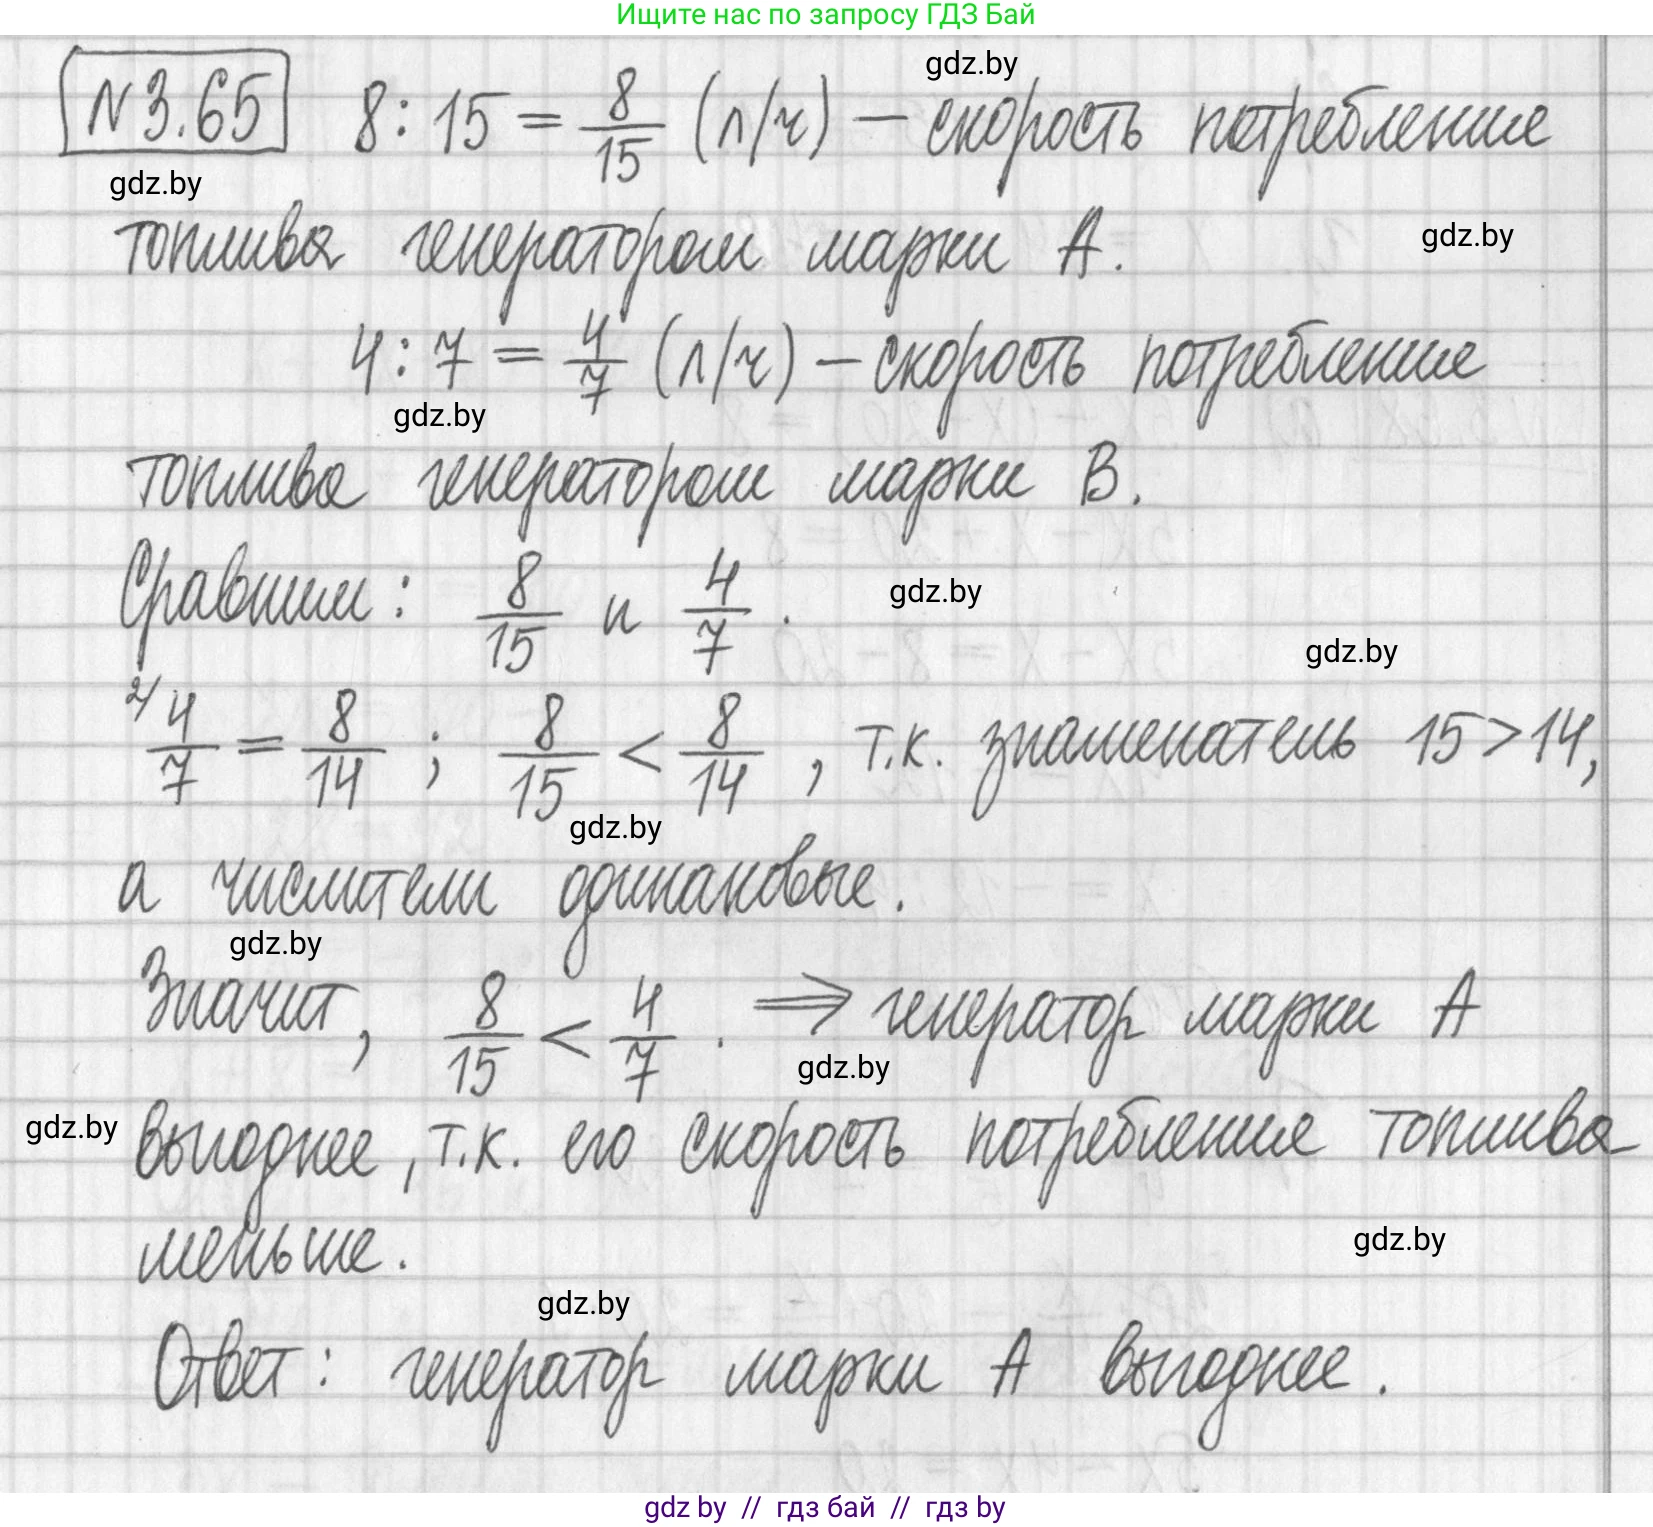 Ищите нас по запросу ГДЗ Бай
gdz.by
N 3.65 8 : 15 = 8/15 (л/ч) – скорость потребление
gdz.by
топлива генератором марки А.
gdz.by
4 : 7 = 4/7 (л/ч) – скорость потребление
gdz.by
топлива генератором марки В.
Сравним: 8/15 и 4/7 .
gdz.by
gdz.by
2/ 4/7 = 8/14 ; 8/15 < 8/14 , т.к. знаменатель 15 > 14,
gdz.by
а числители одинаковые.
gdz.by
Значит, 8/15 < 4/7 . ⇒ генератор марки А
gdz.by
gdz.by
выгоднее, т.к. его скорость потребление топлива
меньше.
gdz.by
gdz.by
Ответ: генератор марки А выгоднее.
gdz by // гдз бай // гдз by